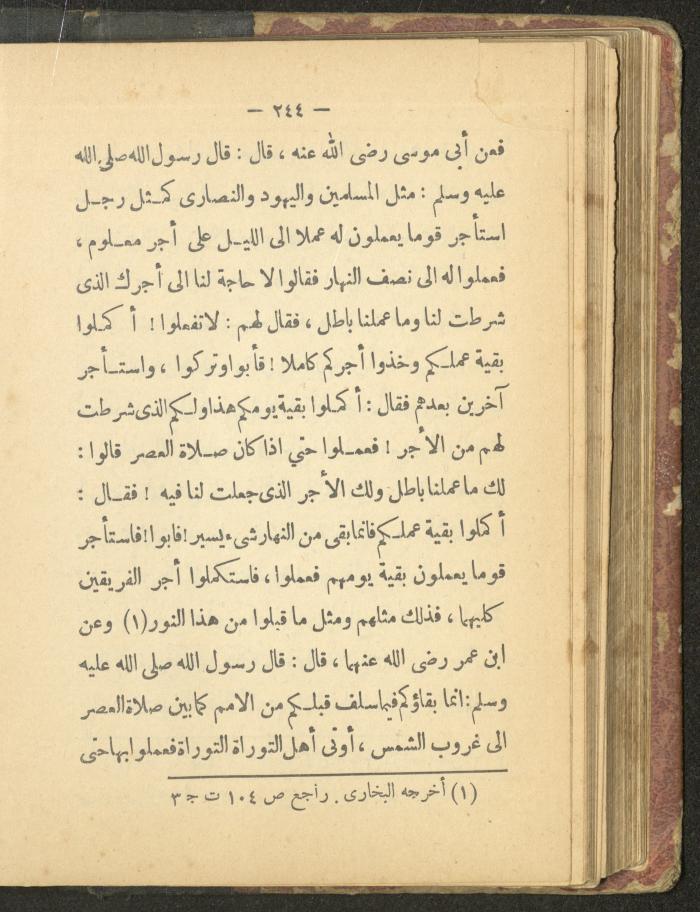 — ٢٤٤ —
فعن أبى موسى رضى الله عنه ، قال : قال رسول الله صلى الله
عليه وسلم : مثل المسلمين واليهود والنصارى كمثل رجل
استأجر قوما يعملون له عملا الى الليل على أجر معلوم ،
فعملوا له الى نصف النهار فقالوا لا حاجة لنا الى أجرك الذى
شرطت لنا وما عملنا باطل ، فقال لهم : لا تفعلوا ! أكملوا
بقية عملكم وخذوا أجركم كاملا ! فأبوا وتركوا ، واستأجر
آخرين بعدهم فقال : أكملوا بقية يومكم هذا ولكم الذى شرطت
لهم من الأجر ! فعملوا حتي اذا كان صلاة العصر قالوا :
لك ما عملنا باطل ولك الأجر الذى جعلت لنا فيه ! فقال :
أكملوا بقية عملكم فانما بقى من النهار شىء يسير ! فابوا ! فاستأجر
قوما يعملون بقية يومهم فعملوا ، فاستكملوا أجر الفريقين
كليهما ، فذلك مثلهم ومثل ما قبلوا من هذا النور (١) وعن
ابن عمر رضى الله عنهما ، قال : قال رسول الله صلى الله عليه
وسلم : انما بقاؤكم فيما سلف قبلكم من الامم كما بين صلاة العصر
الى غروب الشمس ، أوتى أهل التوراة التوراة فعملوا بها حتى
(١) أخرجه البخارى . راجع ص ١٠٤ ت ج ٣